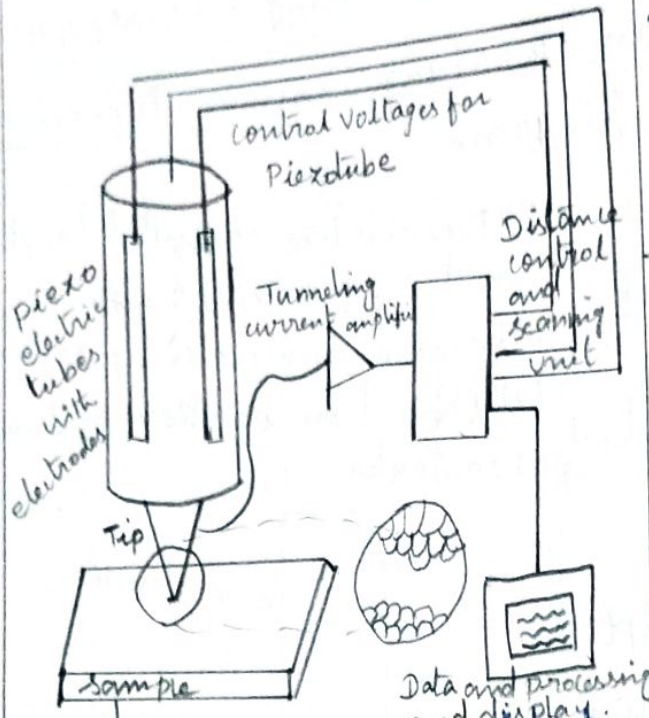 control voltages for
Piezotube
piezo
electric
tubes
with
electrodes
Tunneling
current amplifi
Distance
control
and
scanning
unit
Tip
Sample
Data and processing
and display.